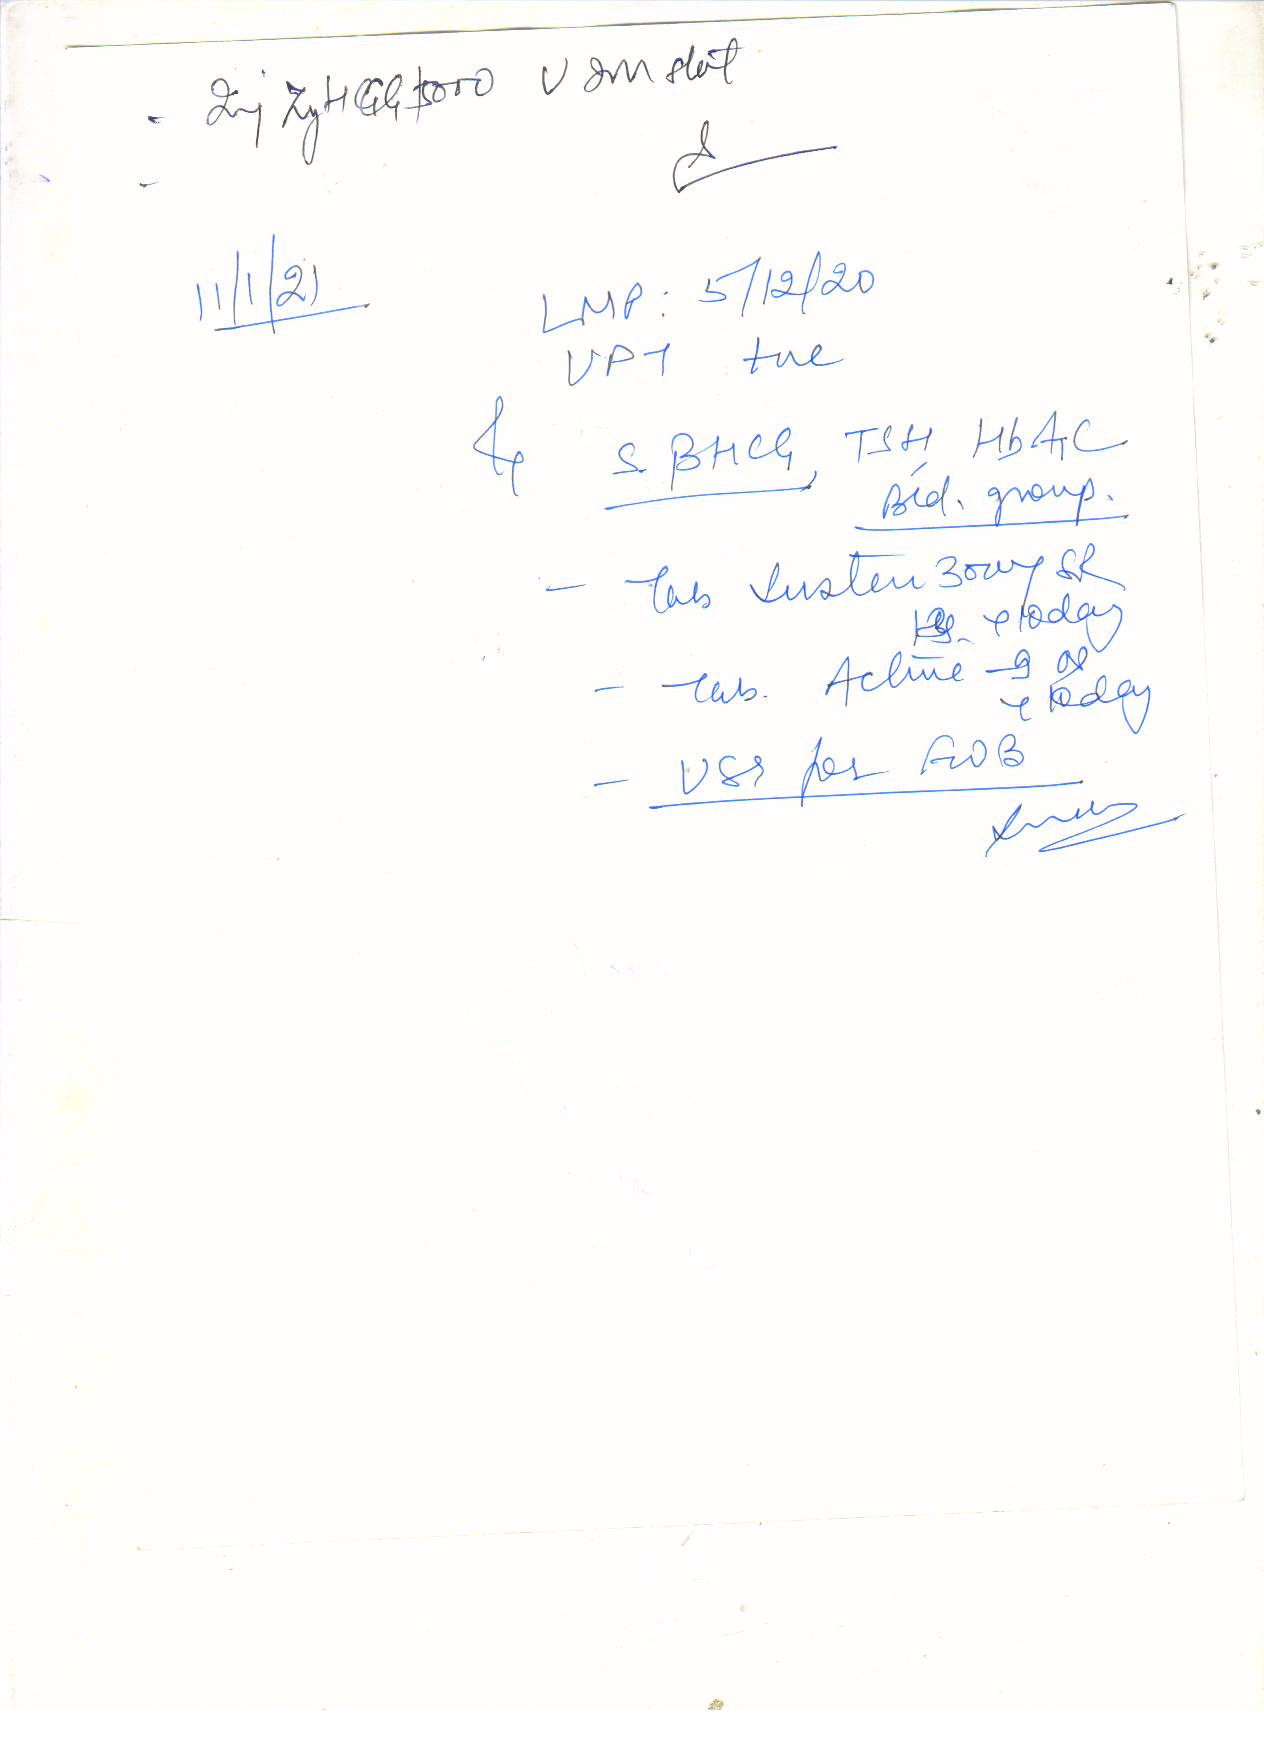 - Inj ZyHCG 5000 U IM stat
-
11/1/21
LMP: 5/12/20
UPT +ve
S. BHCG, TSH, HbA1C
Bld. group.
- Tab Susten 300mg SR
HS. today
- Tab. Active today
- USG for EOB